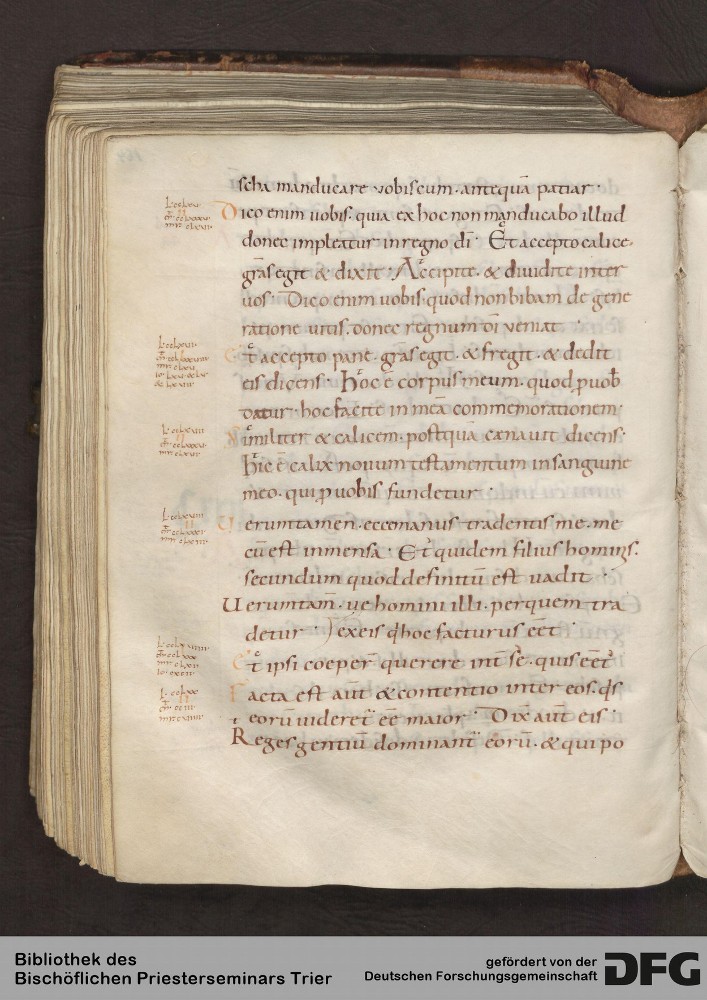 scha manducare vobiscum · antequā patiar ·
Dico enim uobis · quia ex hoc non manducabo illud
donec impleatur in regno dī · Et accepto calice ·
grās egit & dixit · Accipite · & diuidite inter
uos · Dico enim uobis · quod non bibam de gene
ratione uitis · donec regnum dī veniat ·
Et accepto pane · grās egit · & fregit · & dedit
eis dicens · Hoc ē corpus meum · quod ꝓ uob
datur · hoc facite in meā commemorationem ·
Similiter & calicem · postquā cænauit dicens ·
Hic ē calix nouum testamentum in sanguine
meo · qui ꝓ uobis fundetur ·
Uerumtamen · ecce manus tradentis me · me
cū est in mensa · Et quidem filius hominis ·
secundum quod definitū est uadit ·
Uerumtam̄ · ue homini illi · per quem tra
detur · ex eis q̄ hoc facturus eēt ·
Et ipsi coeper̄ querere int̄ sē · quis eēt
Facta est aūt & contentio inter eos · q̄s
eorū uideret̄ eē maior · Dix aūt eis ·
Reges gentiū dominant̄ eorū · & qui po
Bibliothek des
Bischöflichen Priesterseminars Trier
gefördert von der
Deutschen Forschungsgemeinschaft
DFG